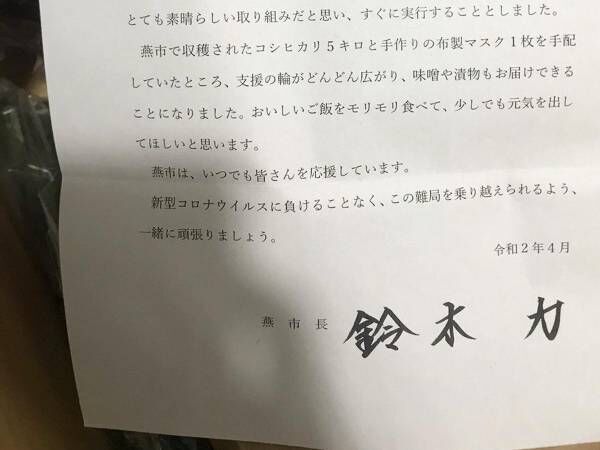 とても素晴らしい取り組みだと思い、すぐに実行することとしました。
燕市で収穫されたコシヒカリ５キロと手作りの布製マスク１枚を手配
していたところ、支援の輪がどんどん広がり、味噌や漬物もお届けできる
ことになりました。おいしいご飯をモリモリ食べて、少しでも元気を出し
てほしいと思います。
燕市は、いつでも皆さんを応援しています。
新型コロナウイルスに負けることなく、この難局を乗り越えられるよう、
一緒に頑張りましょう。
令和２年４月
燕 市 長 鈴木 力